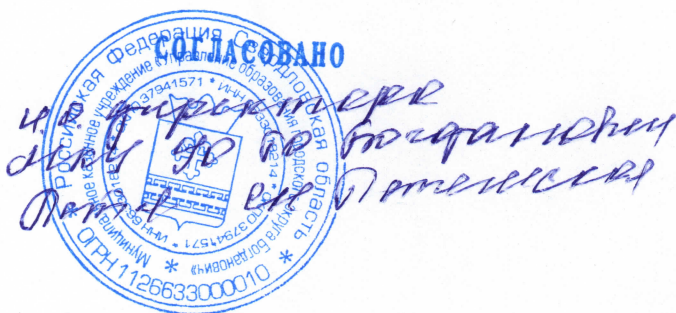 СОГЛАСОВАНО
и.о. директора
МКУ УО ГО Богданович
Российская Федерация Свердловская область
* ОГРН 1126633000010 *
Муниципальное казенное учреждение «Управление образования городского округа Богданович» *
37941571 * ИНН
* 37941571